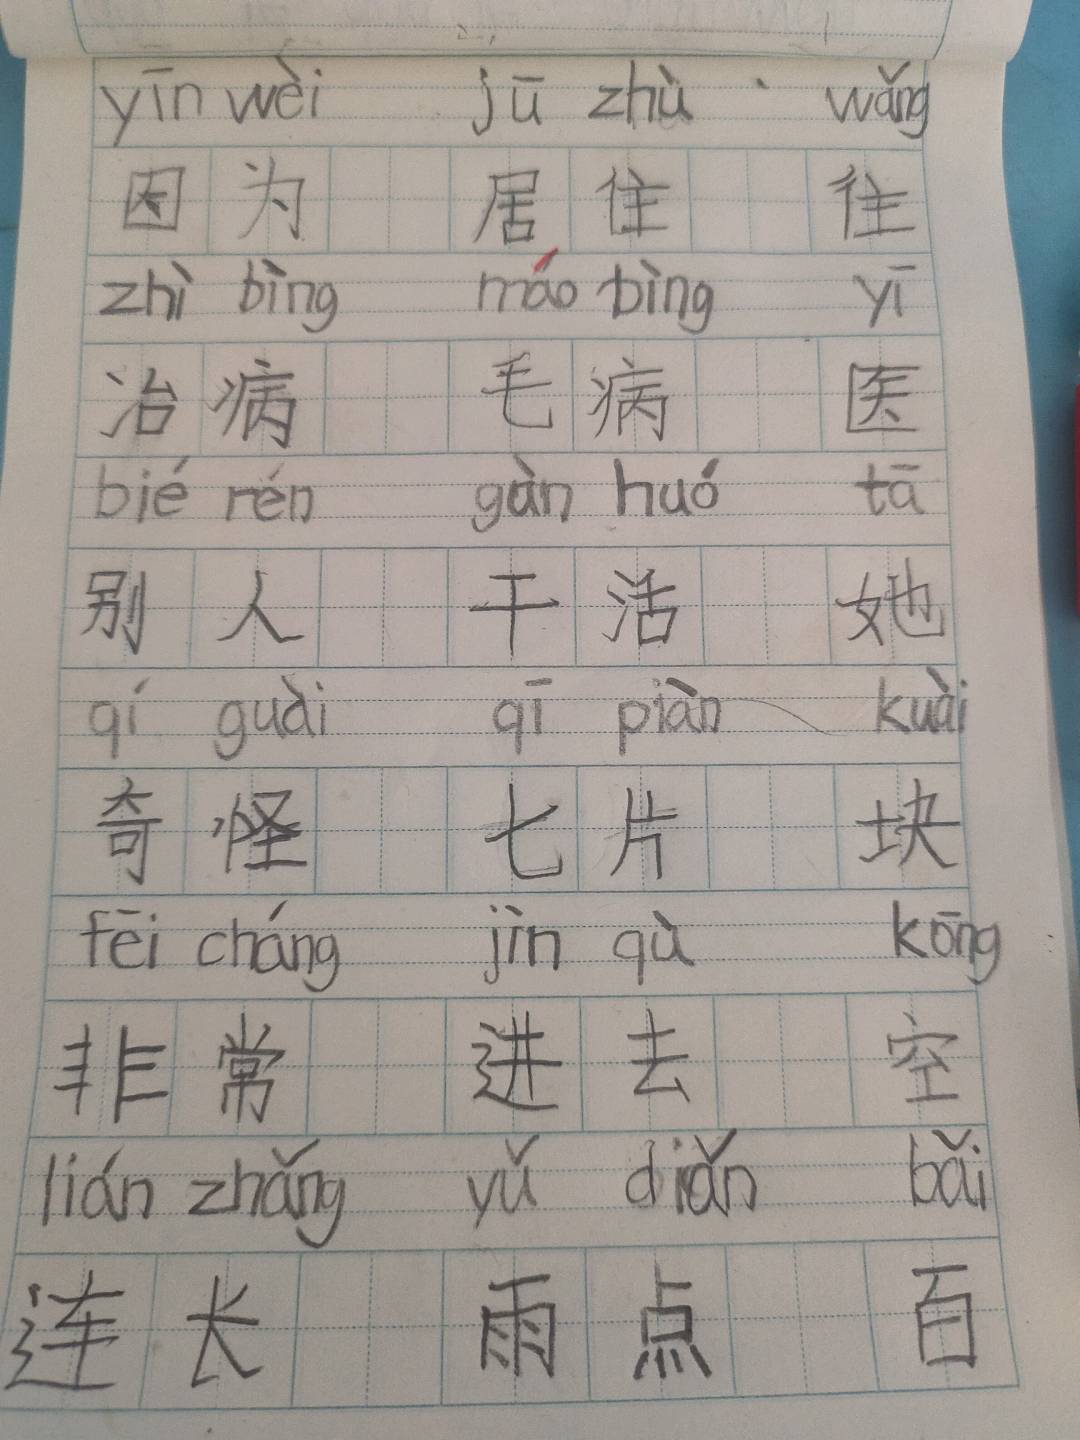 yīn wèi jū zhù wǎng
因为 居住 往
zhì bìng máo bìng yī
治病 毛病 医
bié rén gàn huó tā
别人 干活 她
qí guài qī piàn kuài
奇怪 七片 块
fēi cháng jìn qù kōng
非常 进去 空
lián zhǎng yǔ diǎn bǎi
连长 雨点 百